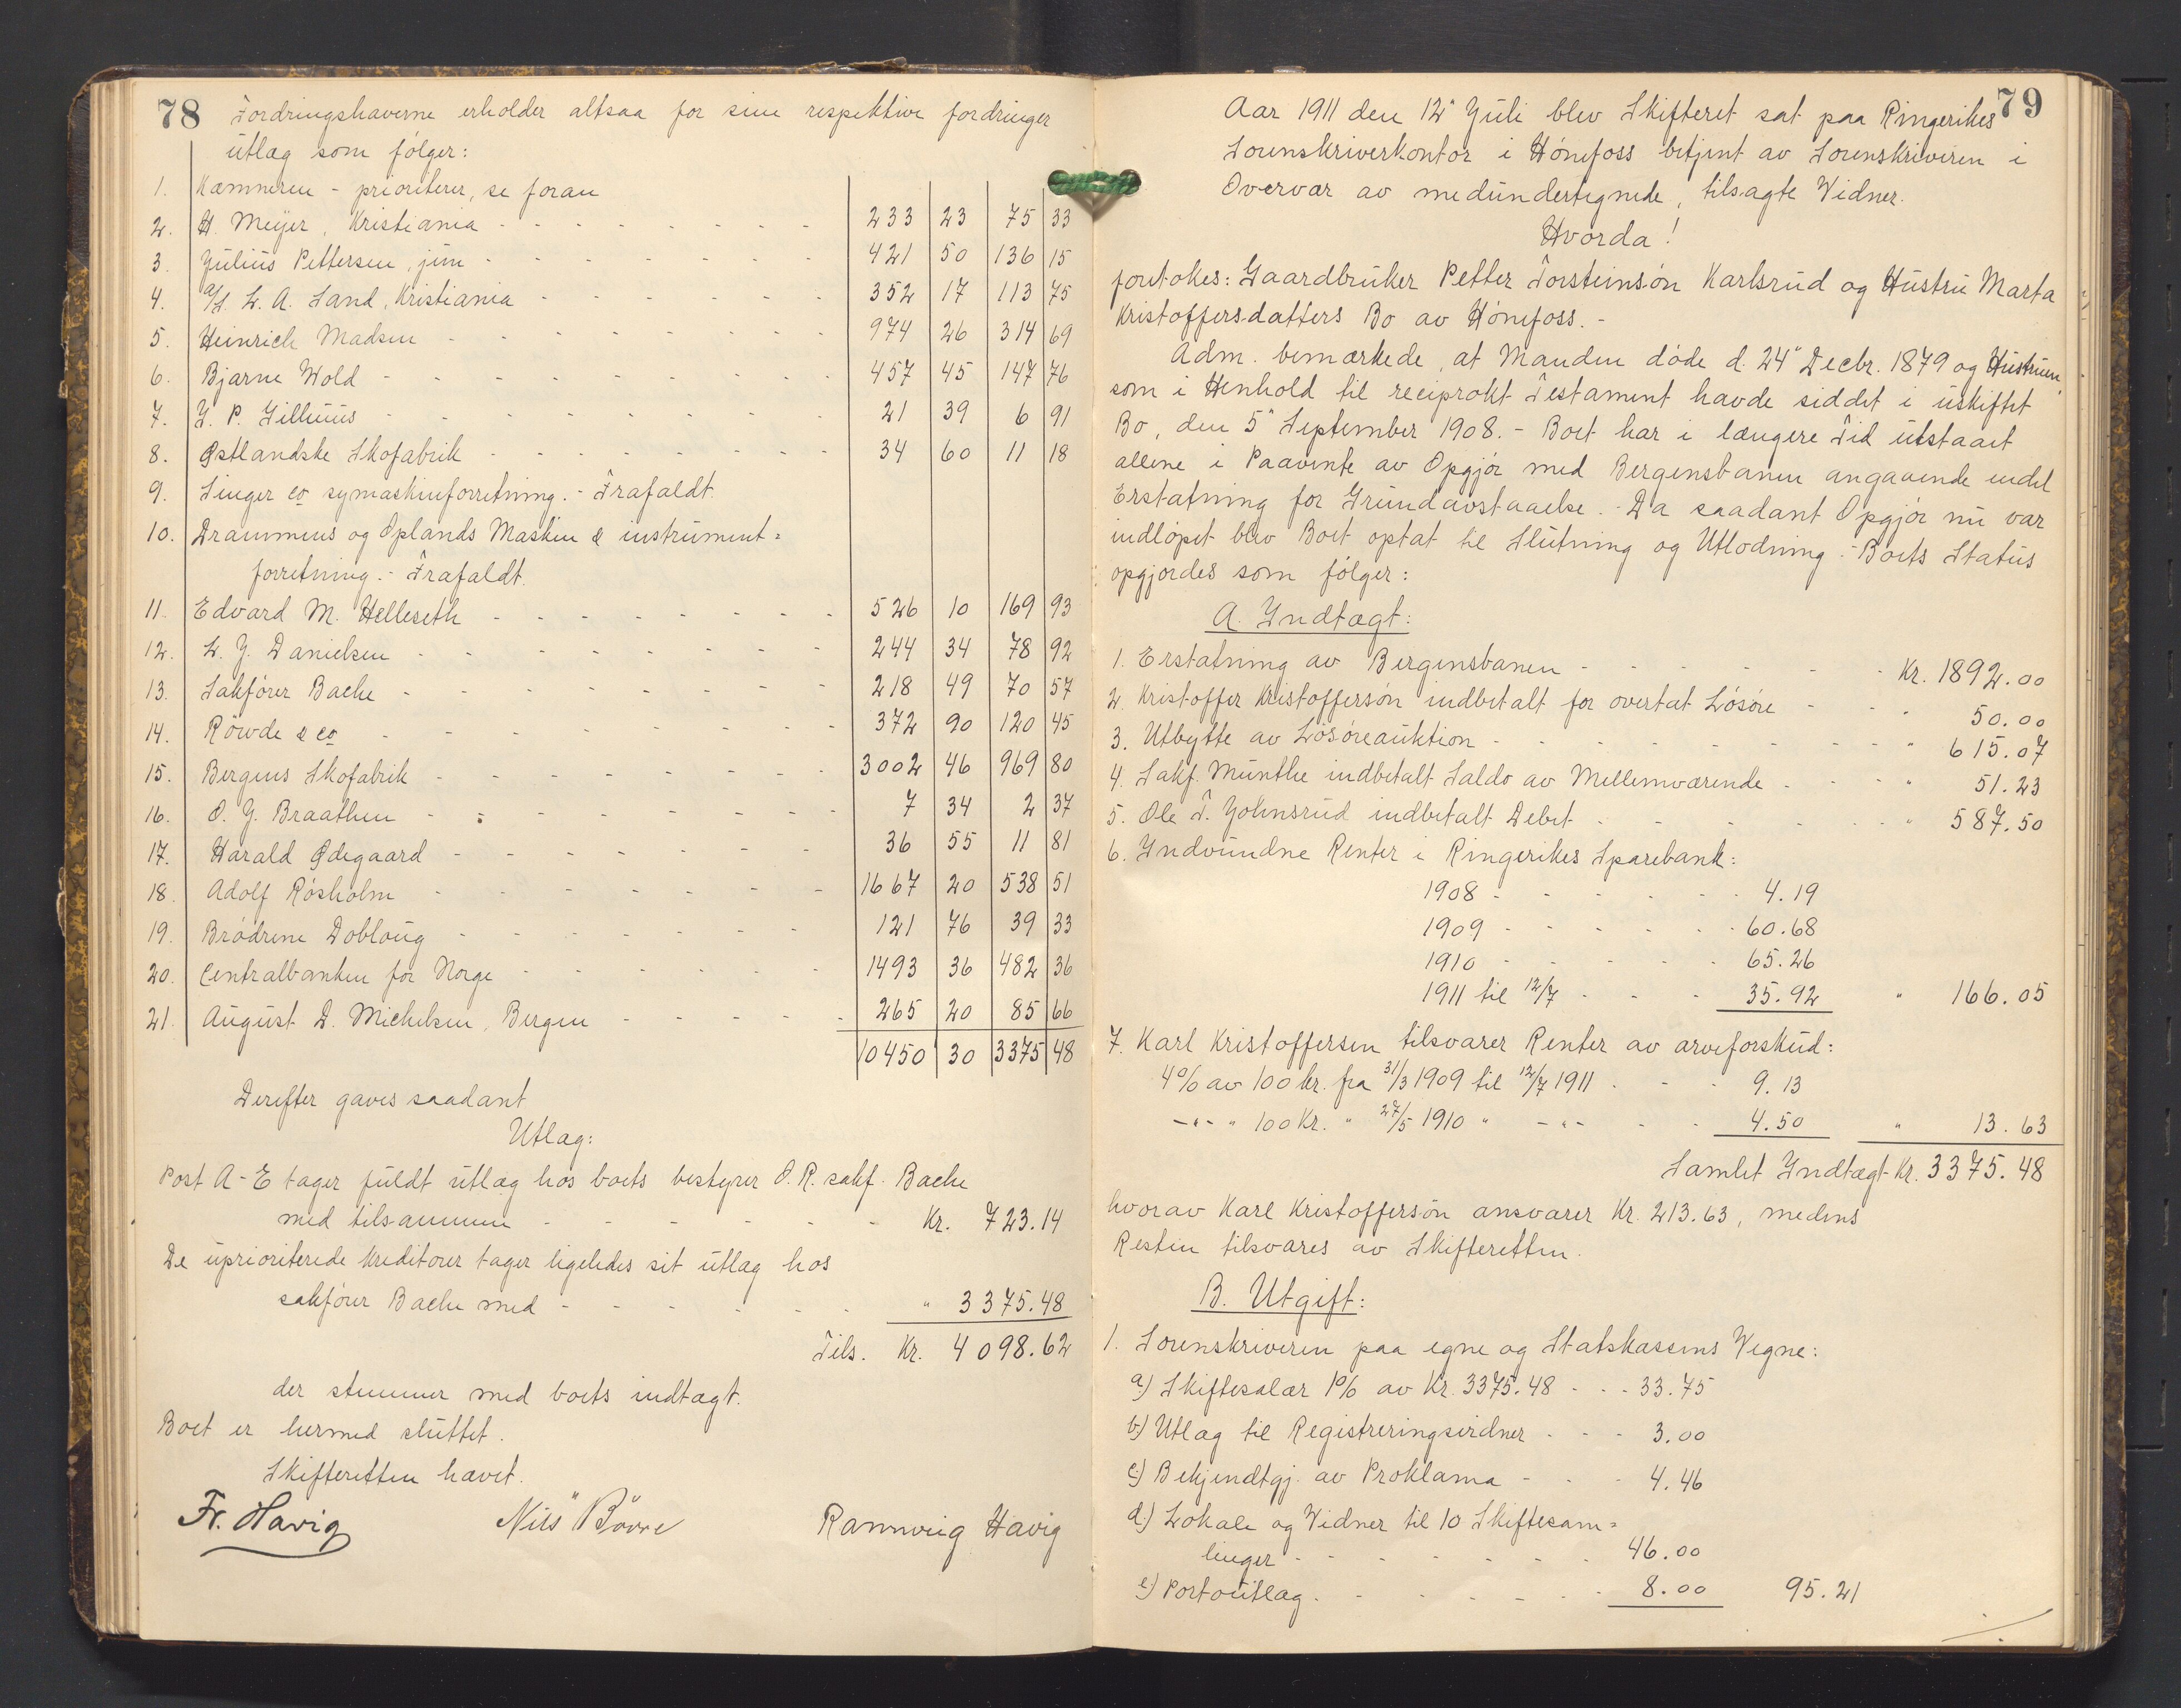 78
Fordringshaverne erholder altsaa for sine respektive fordringer
utlæg som følger:
1. Kæmneren - prioriterer, se foran
2. H. Meyer, Kristiania - - - 233 23 75 33
3. Julius Pettersen, jun - - - 421 50 136 15
4. A/S L. A. Sand, Kristiania - - - 352 17 113 75
5. Heinrich Madsen - - - 974 26 314 69
6. Bjarne Wold - - - 457 45 147 76
7. J. P. Jillums - - - 21 39 6 91
8. Østlandske Skofabrik - - - 34 60 11 18
9. Singer co symaskinforretning. - Frafaldt.
10. Drammens og Oplands Maskin & instrument=
forretning. - Frafaldt.
11. Edvard M. Helleseth - - - 526 10 169 93
12. L. J. Danielsen - - - 244 34 78 92
13. Sakfører Bache - - - 218 49 70 57
14. Røwde & co - - - 372 90 120 45
15. Bergens Skofabrik - - - 3002 46 969 80
16. O. J. Braathen - - - 7 34 2 37
17. Harald Ødegaard - - - 36 55 11 81
18. Adolf Røsholm - - - 1667 20 538 51
19. Brødrene Dobloug - - - 121 76 39 33
20. Centralbanken for Norge - - - 1493 36 482 36
21. August D. Michelsen, Bergen - - - 265 20 85 66
10450 30 3375 48
Derefter gaves saadant
Utlæg:
Post A-E tager fuldt utlæg hos boets bestyrer O.R. sakf. Bache
med tilsammen - - - Kr. 723.14
De uprioriterede kreditorer tager ligeledes sit utlæg hos
sakfører Bache med - - - " 3375.48
Tils. Kr. 4098.62
der stemmer med boets indtægt.
Boet er hermed sluttet.
Skifteretten hævet.
Fr. Havig Nils Bövre Rannveig Havig
79
Aar 1911 den 12" Juli blev Skifteret sat paa Ringerikes
Sorenskriverkontor i Hønefoss betjent av Sorenskriveren i
Overvær av medundertegnede, tilsagte Vidner.
Hvorda!
foretokes: Gaardbruker Petter Torsteinsøn Karlsrud og Hustru Marta
Kristoffersdatters Bo av Hønefoss. -
Adm. bemærkede, at Manden døde d. 24" Decbr. 1879 og Hustruen,
som i Henhold til reciprokt Testament havde siddet i uskiftet
Bo, den 5" September 1908. - Boet har i længere Tid utstaaet
allene i Paavente av Opgjør med Bergensbanen angaaende endel
Erstatning for Grundavstaaelse. - Da saadant Opgjør nu var
indløpet blev Boet optat til Slutning og Utlodning. - Boets Status
opgjordes som følger:
A. Indtægt:
1. Erstatning av Bergensbanen - - - Kr. 1892.00
2. Kristoffer Kristoffersøn indbetalt for overtat Løsøre - - " 50.00
3. Utbytte av Løsøreauktion - - - " 615.07
4. Sakf. Munthe indbetalt Saldo av Mellemværende - - - " 51.23
5. Ole T. Johnsrud indbetalt Debet - - - " 587.50
6. Indvundne Renter i Ringerikes Sparebank:
1908 - - - 4.19
1909 - - - 60.68
1910 - - - 65.26
1911 til 12/7 - - - 35.92 " 166.05
7. Karl Kristoffersen tilsvarer Renter av arveforskud:
4% av 100 kr. fra 31/3 1909 til 12/7 1911 - - - 9.13
-"- " 100 Kr. " 27/5 1910 " -"- - - 4.50 " 13.63
Samlet Indtægt Kr. 3375.48
hvorav Karl Kristoffersøn ansvarer Kr. 213.63, medens
Resten tilsvares av Skifteretten.
B. Utgift:
1. Sorenskriveren paa egne og Statskassens Vegne:
a) Skiftesalær 1% av Kr. 3375.48 - - - 33.75
b) Utlæg til Registreringsvidner - - - 3.00
c) Bekjendtgj. av Proklama - - - 4.46
d) Lokale og Vidner til 10 Skiftesam=
linger - - - 46.00
e) Portoutlæg - - - 8.00 95.21